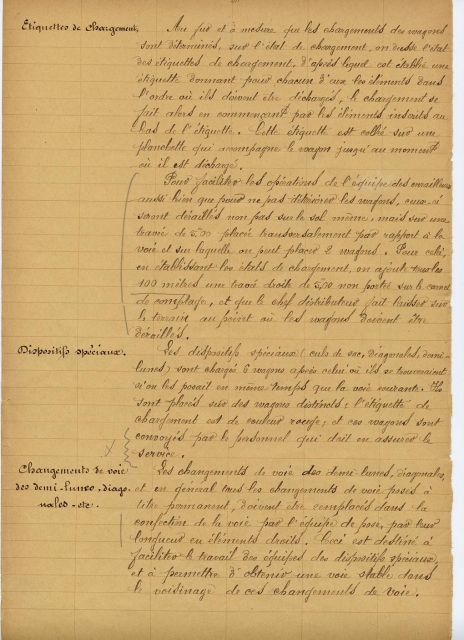 Etiquettes de Chargement.
Au fur et à mesure que les chargements des wagons
sont déterminés, sur l'état de chargement, on dresse l'état
des étiquettes de chargement, d'après lequel est établie une
étiquette donnant pour chacun d'eux les éléments dans
l'ordre où ils doivent être déchargés, le chargement se
fait alors en commençant par les éléments inscrits au
bas de l'étiquette. Cette étiquette est collée sur une
planchette qui accompagne le wagon jusqu'au moment
où il est déchargé.
Pour faciliter les opérations de l'équipe des
aussi bien que pour ne pas détériorer les wagons, ceux-ci
seront déraillés non pas sur le sol même, mais sur une
travée de 5,00 placée transversalement par rapport à la
voie et sur laquelle on peut placer 2 wagons. Pour cela,
en établissant les états de chargement, on ajoute tous les
100 mètres une travée droite de 5,00 non portée sur le carnet
de comptage, et que le chef distributeur fait laisser sur
le terrain au point où les wagons doivent être
déraillés.
Dispositifs spéciaux.
Les dispositifs spéciaux (culs de sac, diagonales, demi-
lunes) sont chargés 6 wagons après celui où ils se trouveraient
si on les posait en même temps que la voie courante. Ils
sont placés sur des wagons distincts; l'étiquette de
chargement est de couleur rouge, et ces wagons sont
convoyés par le personnel qui doit en assurer le
service.
Changements de voie
des demi-lunes, diago-
nales - etc.
Les changements de voie des demi-lunes, diagonales,
et en général tous les changements de voie posés à
titre permanent, doivent être remplacés dans la
confection de la voie par l'équipe de pose, par leur
longueur en éléments droits. Ceci est destiné à
faciliter le travail des équipes des dispositifs spéciaux,
et à permettre d'obtenir une voie stable dans
le voisinage de ces changements de voie.